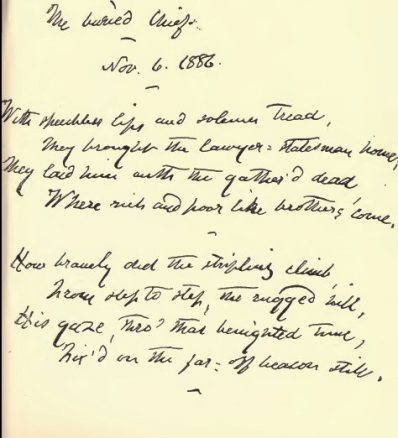 The buried Chief.
Nov. 6. 1886.
With speechless lips and solemn tread,
They brought the Lawyer=Statesman home,
They laid him with the gather'd dead,
Where rich and poor like brothers come.
How bravely did the stripling climb,
From step to step, the rugged hill,
His gaze, thro' that benighted time,
Fix'd on the far=off beacon still.